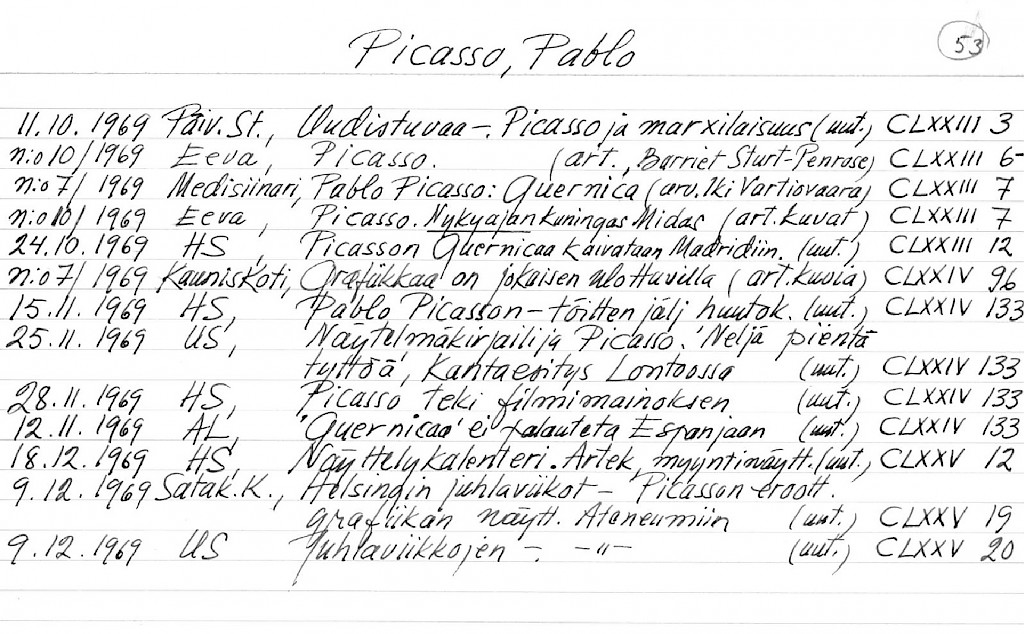 53
Picasso, Pablo
11.10.1969 Päiv.St., Uudistuvaa -. Picasso ja marxilaisuus (uut.) CLXXIII 3
n:o 10/1969 Eeva, Picasso. (art., Barriet Sturt-Penrose) CLXXIII 6-
n:o 7/1969 Medisiinari, Pablo Picasso: Guernica (arv. Iki Vartiovaara) CLXXIII 7
n:o 10/1969 Eeva, Picasso. Nykyajan kuningas Midas (art. kuvat) CLXXIII 7
24.10.1969 HS, Picasson Guernicaa kaivataan Madridiin. (uut.) CLXXIII 12
n:o 7/1969 Kauniskoti, Grafiikkaa on jokaisen ulottuvilla (art. kuvia) CLXXIV 96
15.11.1969 HS, Pablo Picasson - töitten jälj huutok. (uut.) CLXXIV 133
25.11.1969 US, Näytelmäkirjailija Picasso. 'Neljä pientä
tyttöä', Kantaesitys Lontoossa (uut.) CLXXIV 133
28.11.1969 HS, Picasso teki filmimainoksen (uut.) CLXXIV 133
12.11.1969 AL, 'Guernicaa' ei palauteta Espanjaan (uut.) CLXXIV 133
18.12.1969 HS, Näyttelykalenteri. Artek, myyntinäytt. (uut.) CLXXV 12
9.12.1969 Satak.K., Helsingin juhlaviikot - Picasson eroott.
grafiikan näytt. Ateneumiin (uut.) CLXXV 19
9.12.1969 US Juhlaviikkojen -. -"- (uut.) CLXXV 20